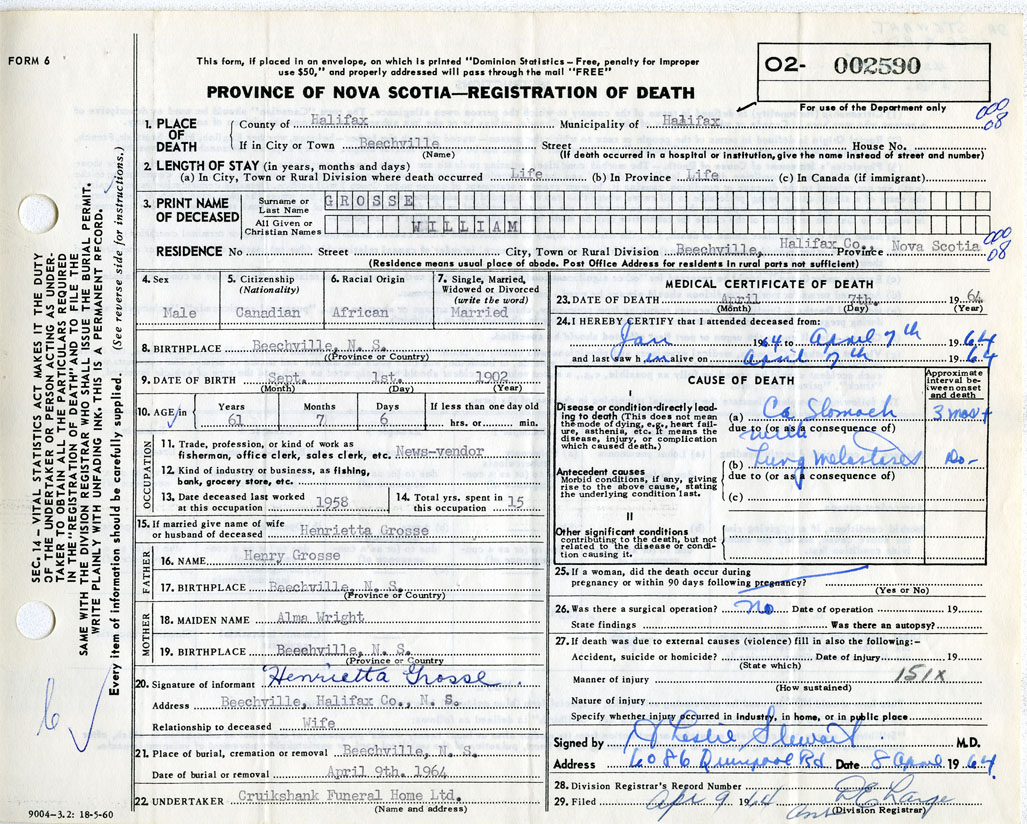 FORM 6
This form, if placed in an envelope, on which is printed "Dominion Statistics – Free, penalty for improper
use $50," and properly addressed will pass through the mail "FREE"
PROVINCE OF NOVA SCOTIA—REGISTRATION OF DEATH
O2- 002590
For use of the Department only
000
08
1. PLACE OF DEATH
County of Halifax Municipality of Halifax
If in City or Town Beechville Street House No.
(Name) (If death occurred in a hospital or institution, give the name instead of street and number)
2. LENGTH OF STAY (in years, months and days)
(a) In City, Town or Rural Division where death occurred Life (b) In Province Life (c) In Canada (if immigrant)
3. PRINT NAME OF DECEASED
Surname or Last Name GROSSE
All Given or Christian Names WILLIAM
RESIDENCE No Street City, Town or Rural Division Beechville, Halifax Co., Province Nova Scotia
000
08
(Residence means usual place of abode. Post Office Address for residents in rural parts not sufficient)
4. Sex 5. Citizenship 6. Racial Origin 7. Single, Married,
(Nationality) Widowed or Divorced
(write the word)
Male Canadian African Married
8. BIRTHPLACE Beechville, N. S.
((Province or Country)
9. DATE OF BIRTH Sept. 1st. 1902
(Month) (Day) (Year)
10. AGE in Years Months Days If less than one day old
61 7 6 hrs. or min.
OCCUPATION
11. Trade, profession, or kind of work as
fisherman, office clerk, sales clerk, etc. News-vendor
12. Kind of industry or business, as fishing,
bank, grocery store, etc.
13. Date deceased last worked at this occupation 1958
14. Total yrs. spent in 15
15. If married give name of wife
or husband of deceased Henrietta Grosse
FATHER
16. NAME Henry Grosse
17. BIRTHPLACE Beechville, N. S.
(Province or Country)
MOTHER
18. MAIDEN NAME Alma Wright
19. BIRTHPLACE Beechville, N. S.
(Province or Country
20. Signature of informant Henrietta Grosse
Address Beechville, Halifax Co., N. S.
Relationship to deceased Wife
21. Place of burial, cremation or removal Beechville, N. S.
Date of burial or removal April 9th. 1964
22. UNDERTAKER Cruikshank Funeral Home Ltd.
(Name and address)
MEDICAL CERTIFICATE OF DEATH
23. DATE OF DEATH April 7th. 1964
(Month) (Day) (Year)
24. I HEREBY CERTIFY that I attended deceased from:
Jan 1964 to April 7th 1964
and last saw him alive on April 7th 1964
CAUSE OF DEATH
Approximate interval between onset and death
I
Disease or condition directly leading to death (This does not mean the mode of dying, e.g., heart failure, asthenia, etc. It means the disease, injury, or complication which caused death.)
(a) Ca Stomach 3 mos +
due to (or as a consequence of)
with
(b) Lung Metastases Do-
due to (or as a consequence of)
(c)
Antecedent causes
Morbid conditions, if any, giving rise to the above cause, stating the underlying condition last.
II
Other significant conditions
contributing to the death, but not related to the disease or condition causing it.
25. If a woman, did the death occur during
pregnancy or within 90 days following pregnancy?
(Yes or No)
26. Was there a surgical operation? No Date of operation 19
State findings Was there an autopsy?
27. If death was due to external causes (violence) fill in also the following:–
Accident, suicide or homicide? Date of injury 19
(State which)
Manner of injury 151X
(How sustained)
Nature of injury
Specify whether injury occurred in industry, in home, or in public place
Signed by J Leslie Stewart M.D.
Address 6086 Quinpool Rd. Date 8 April 1964.
28. Division Registrar's Record Number
29. Filed Apr 9 1964
(Division Registrar)
SEC. 14 – VITAL STATISTICS ACT MAKES IT THE DUTY
OF THE UNDERTAKER OR PERSON ACTING AS UNDER-
TAKER TO OBTAIN ALL THE PARTICULARS REQUIRED
IN THE "REGISTRATION OF DEATH" AND TO FILE THE
SAME WITH THE DIVISION REGISTRAR WHO SHALL ISSUE THE BURIAL PERMIT.
WRITE PLAINLY WITH UNFADING INK. THIS IS A PERMANENT RECORD.
Every item of information should be carefully supplied. (See reverse side for instructions.)
9004–3.2: 18-5-60